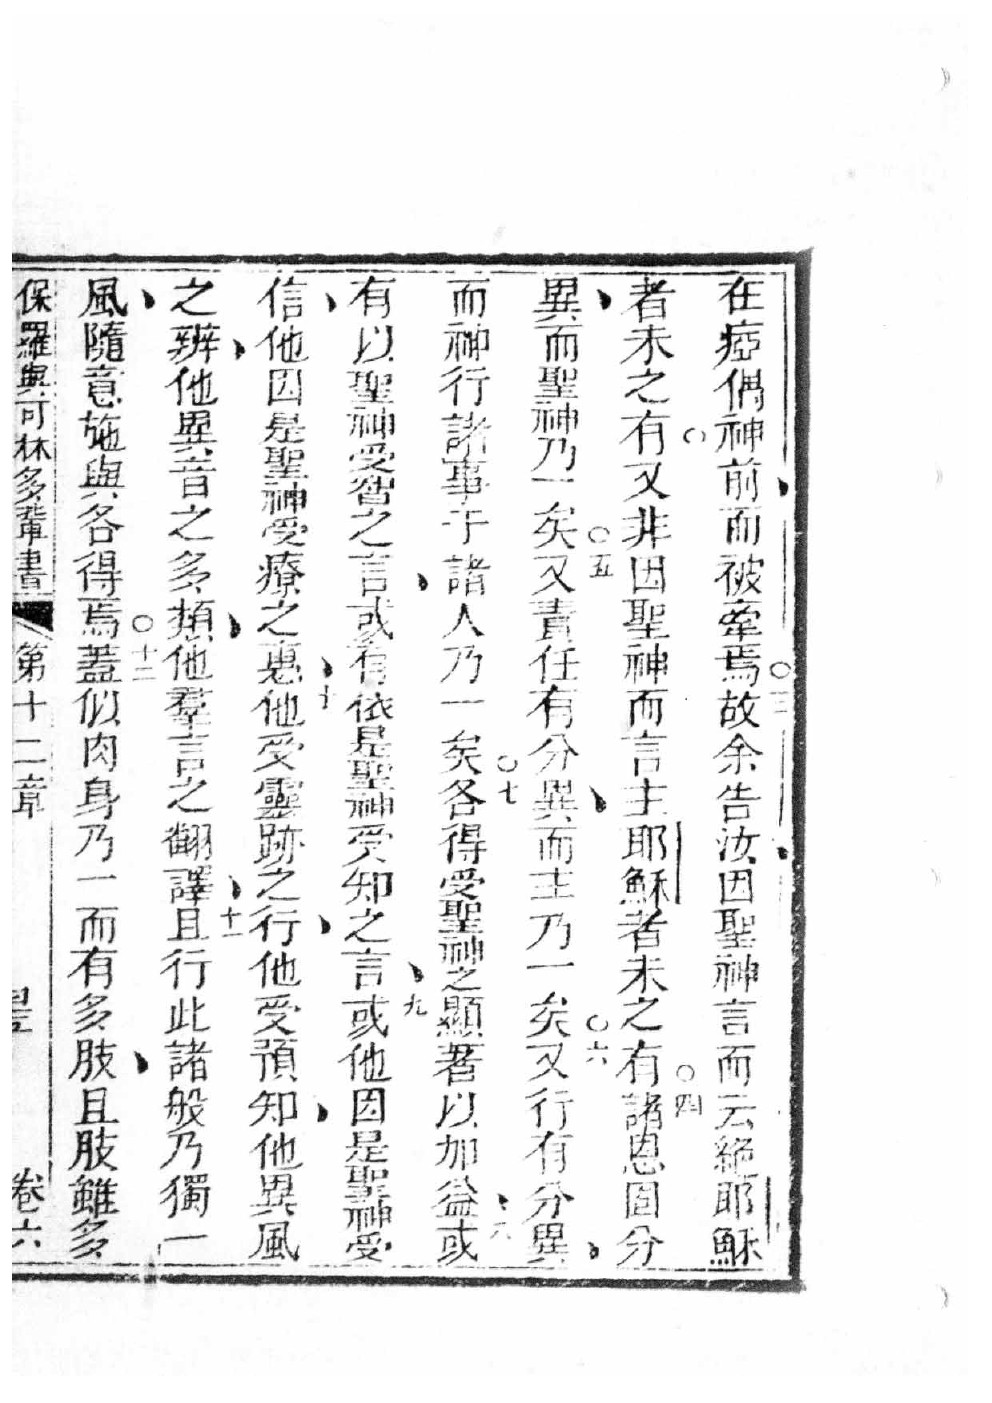 在瘂偶神前而被牽焉○三故余告汝因聖神言而云絕耶穌
者未之有○又非因聖神而言主耶穌者未之有○四諸恩固分
異而聖神乃一矣○五又責任有分異而主乃一矣○六又行有分異
而神行諸事于諸人乃一矣○七各得受聖神之顯著以加益八或
有以聖神受智之言或有依是聖神受知之言九或他因是聖神受
信他因是聖神受療之惠十他受靈跡之行他受預知他異風
之辨他異音之多類他羣言之翻譯十一且行此諸般乃獨一
風隨意施與各得焉○十二蓋似肉身乃一而有多肢且肢雖多
保羅與可林多輩書 第十二章 卷六